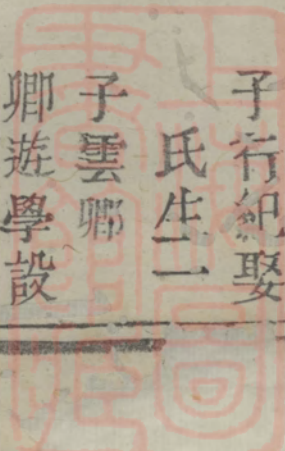 子行紀娶
氏生二
子雲卿
卿遊學設